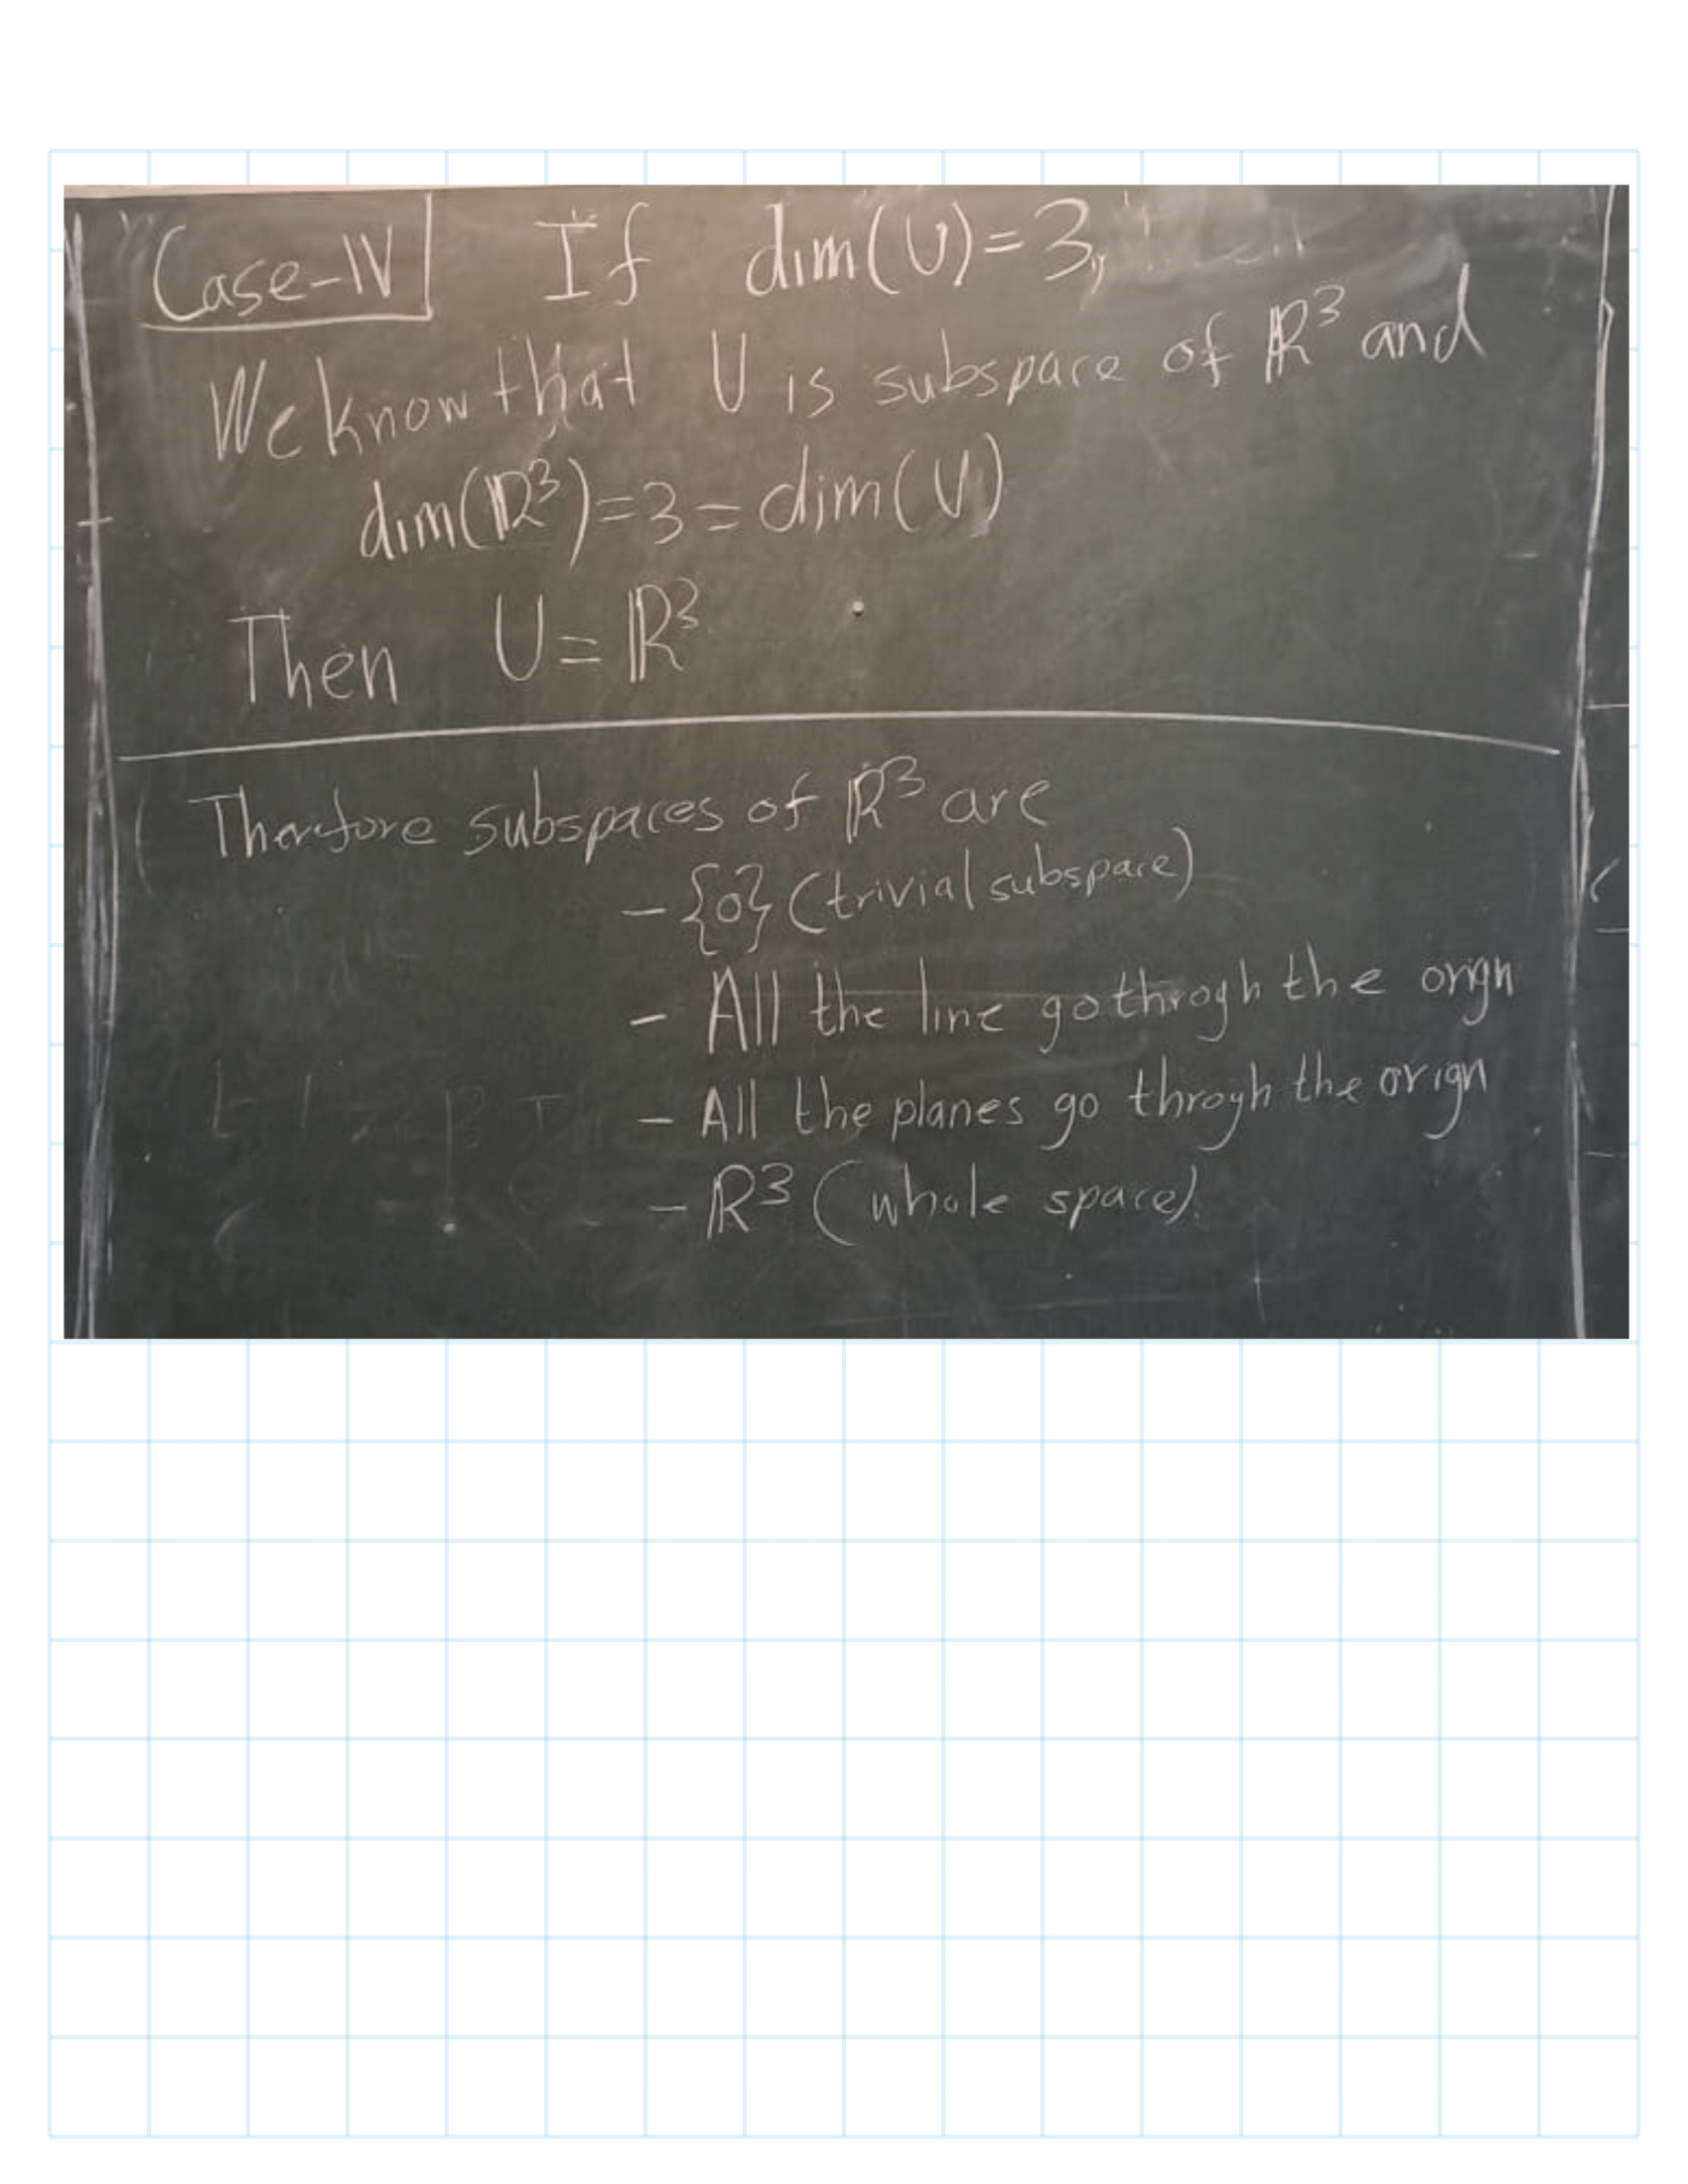 Case-IV If dim(U)=3,
We know that U is subspace of ℝ³ and
dim(ℝ³)=3=dim(U)
Then U=ℝ³
Therefore subspaces of ℝ³ are
- {0} (trivial subspace)
- All the line go throgh the orign
- All the planes go throgh the orign
- ℝ³ (whole space).